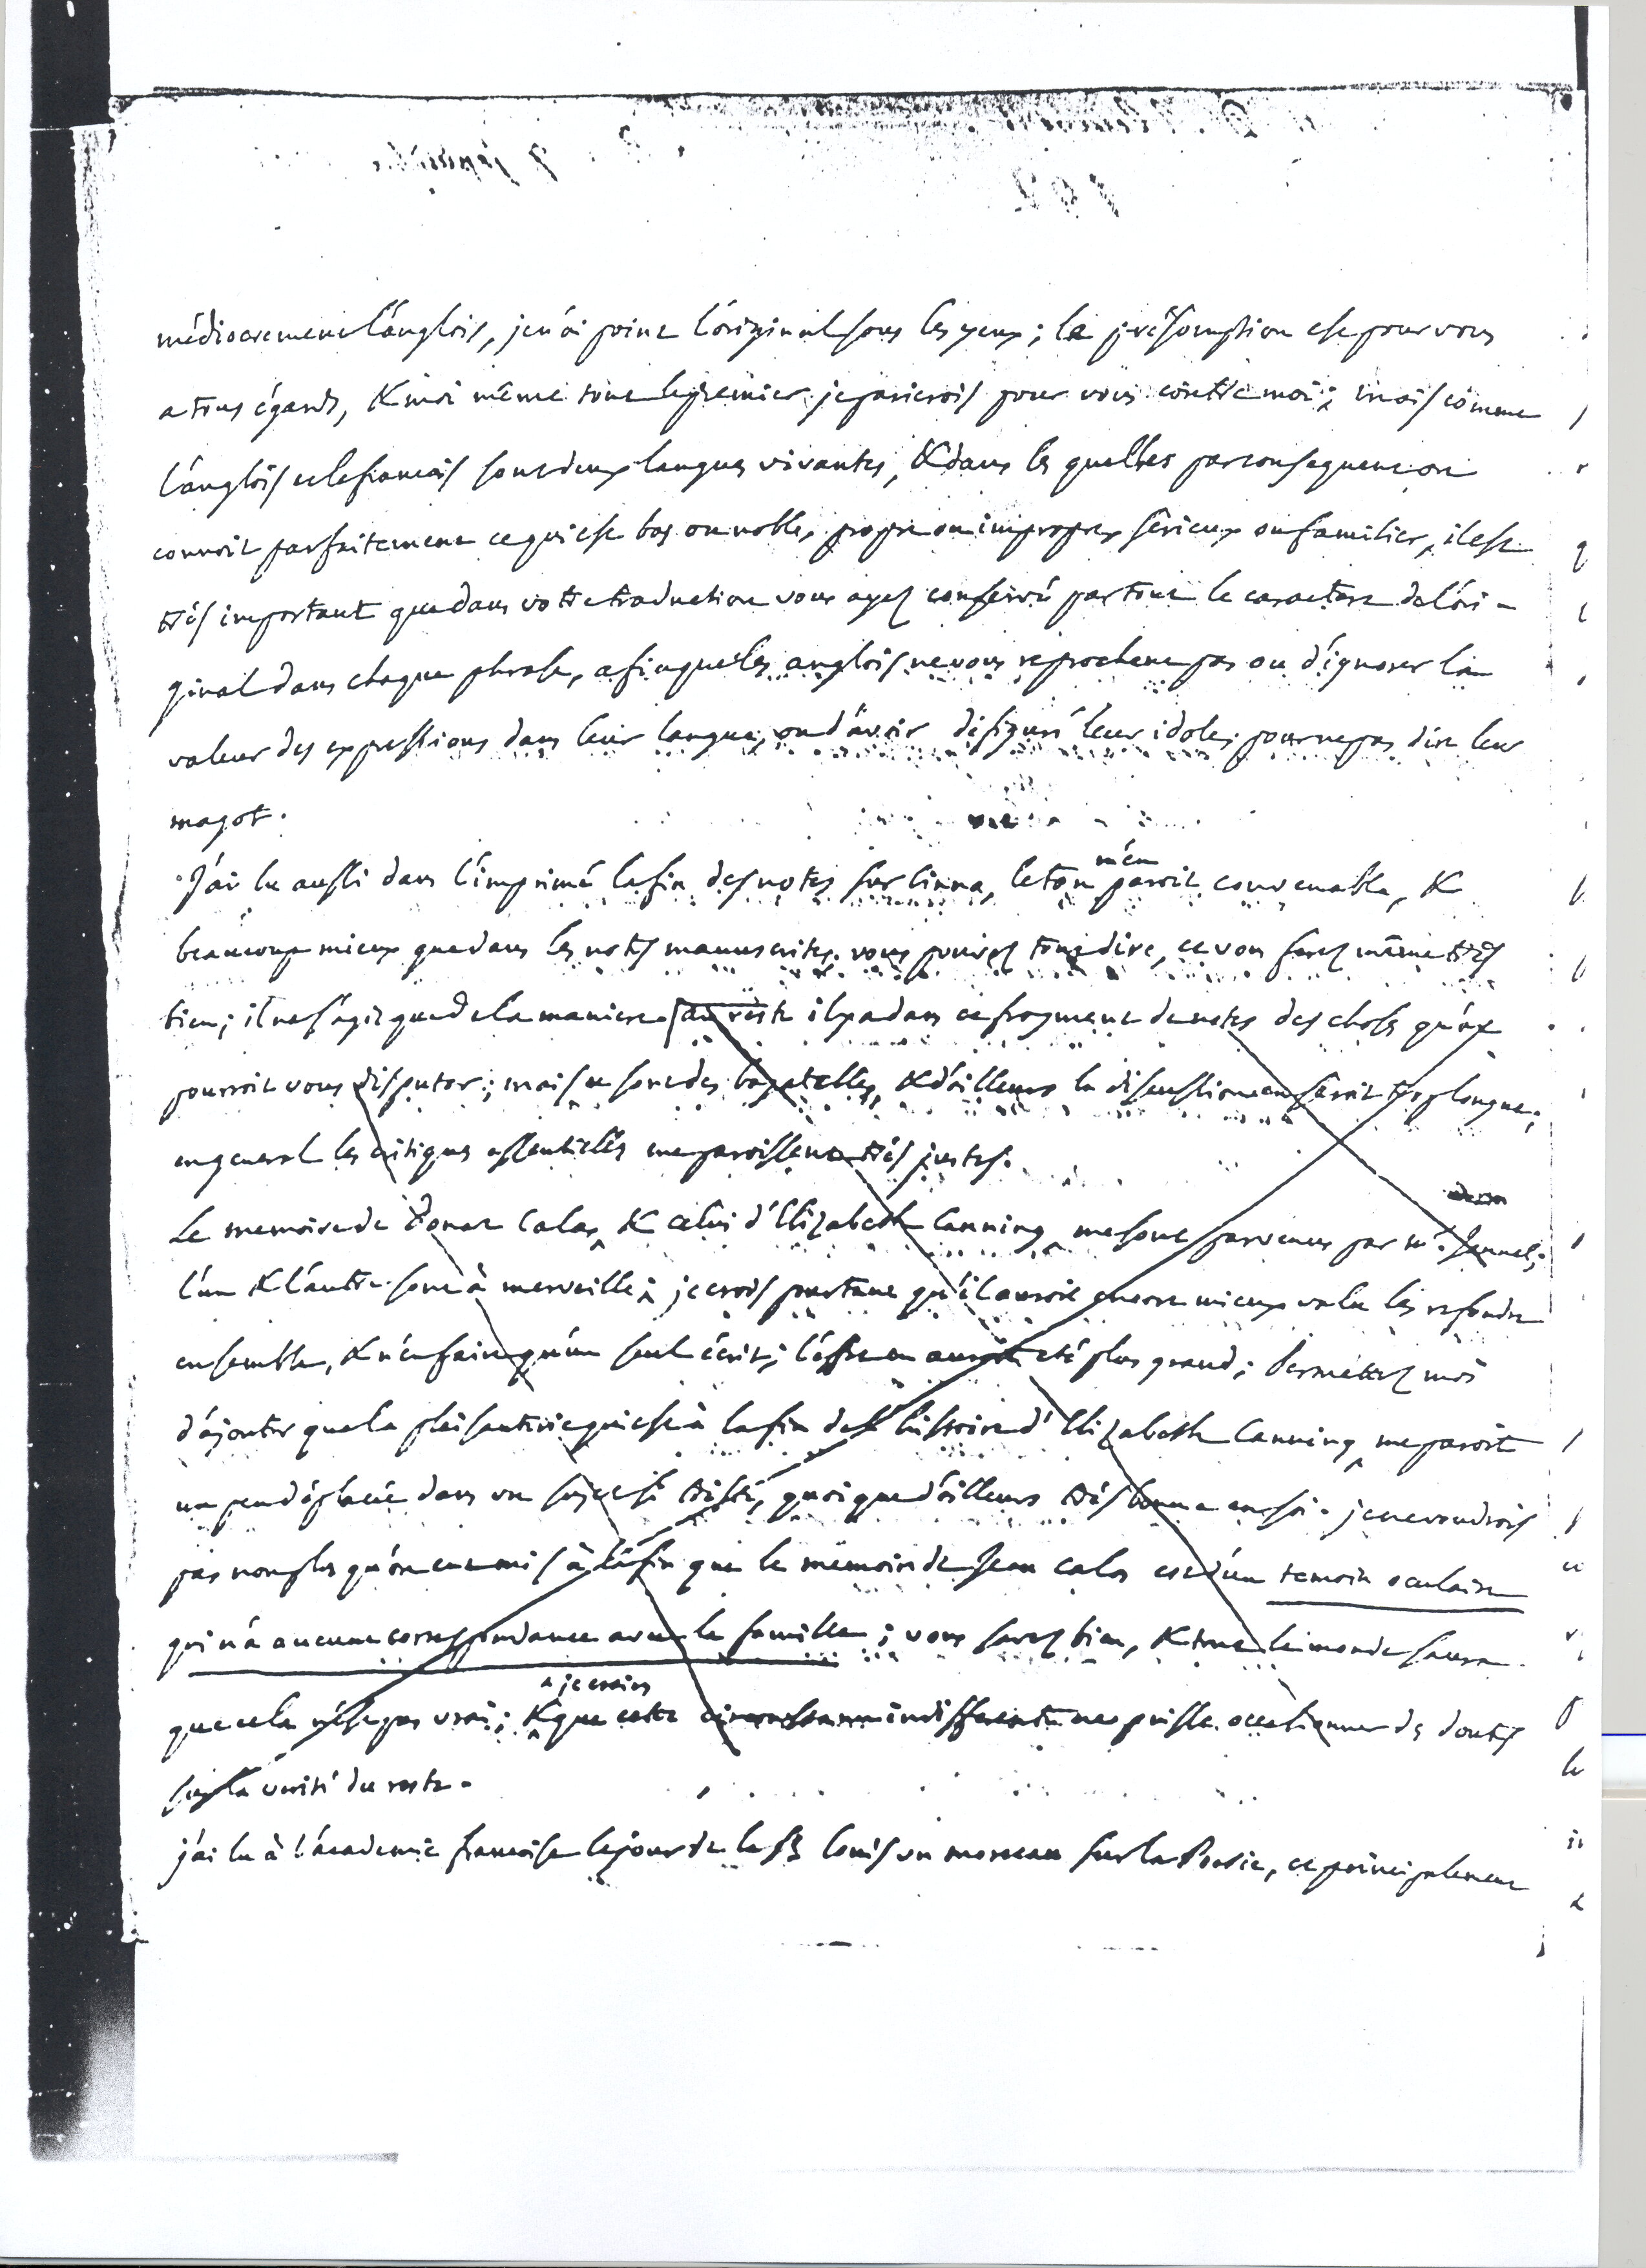 médiocrement l'anglois, je n'ai point l'original sous les yeux; la présomption est pour vous
a tous égards, & moi même tout le premier je parierois pour vous contre moi; mais comme
l'anglois et le francais sont deux langues vivantes, & dans les quelles par consequent on
connoit parfaitement ce qui est bas ou noble, propre ou impropre, serieux ou familier, il est
très important que dans votre traduction vous ayez conservé par tout le caractere de l'ori-
ginal dans chaque phrase, afin que les anglois ne vous reprochent pas ou d'ignorer la
valeur des expressions dans leur langue, ou d'avoir defiguré leur idole, pour ne pas dire leur
magot.
J'ai lu aussi dans l'imprimé la fin des notes sur Cinna, le ton m'en paroit convenable, &
beaucoup mieux que dans les notes manuscrites. vous pouvez tout dire, et vous ferez même très
bien; il ne s'agit que de la maniere. au reste il y a dans ce fragment de notes des choses qu'on
pourroit vous disputer; mais ce sont des bagatelles, & d'ailleurs la discussion en seroit trop longue;
en general les critiques essentielles me paroissent très justes.
Le memoire de Donat Calas, & celui d'Elizabeth Canning, me sont parvenus par mr.
l'un & l'autre sont à merveille; je crois pourtant qu'il auroit encore mieux valu les refondre
ensemble, & n'en faire qu'un seul écrit; l'effet en auroit eté plus grand; Permettez moi
d'ajouter que la plaisanterie qui est à la fin de l'histoire d'Elizabeth Canning, me paroit
un peu déplacée dans un sujet si triste, quoique d'ailleurs très bonne en soi. je ne voudrois
pas non plus qu'on eut mis à la fin que le mémoire de Jean Calas est d'un temoin oculaire
qui n'a aucune correspondance avec la famille; vous savez bien, & tout le monde saura
que cela n'est pas vrai; & je crains que cette circonstance indifferente ne puisse occasionner des doutes
sur la verité du reste.
j'ai lu à l'academie françoise le jour de la St Louis un morceau sur la Poesie, et principalement